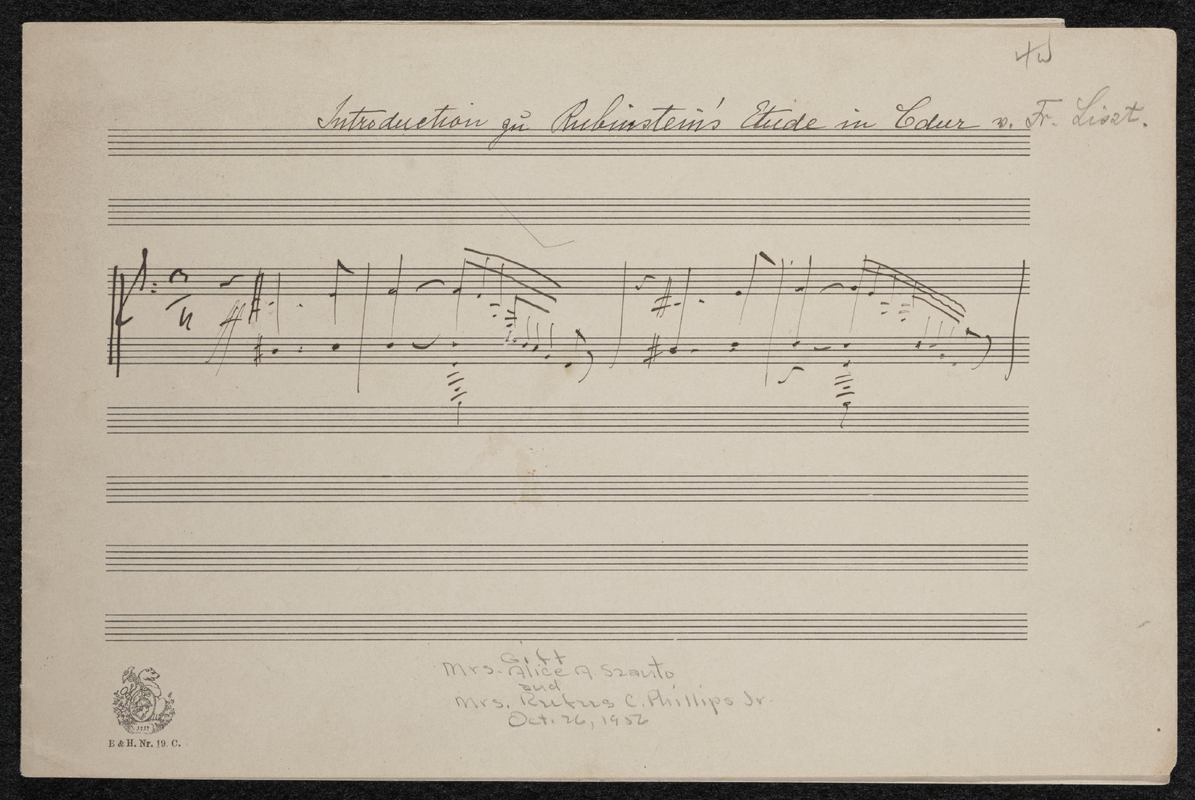 Introduction zu Rubinstein's Etude in Cdur v. Fr. Liszt.
ff
Gift
Mrs. Alice A. Szanto
and
Mrs. Rufus C. Phillips Jr.
Oct. 26, 1956
B & H. Nr. 19. C.